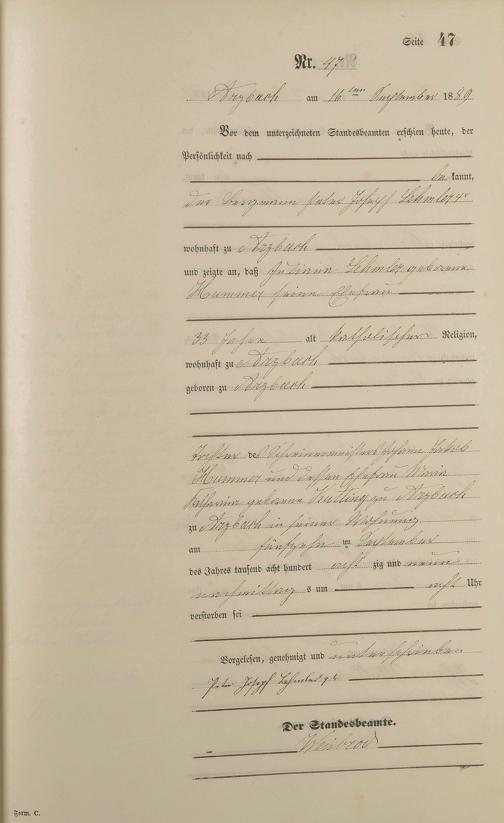 Seite 47
Nr. 47
Arzbach am 16ten September 1889
Vor dem unterzeichneten Standesbeamten erschien heute, der
Persönlichkeit nach
be kannt,
der Bergmann Peter Joseph Lehmler
wohnhaft zu Arzbach
und zeigte an, daß Juliana Lehmler geborene
Hammer seine Ehefrau
33 Jahre alt katholischer Religion,
wohnhaft zu Arzbach
geboren zu Arzbach
Tochter des Schreinermeisters Johann Jakob
Hammer und dessen Ehefrau Maria
Katharina geborene zu Arzbach
zu Arzbach in seiner Wohnung
am fünfzehn ten September
des Jahres tausend acht hundert acht zig und neun
nachmittags um acht Uhr
verstorben sei
Vorgelesen, genehmigt und unterschrieben
Peter Joseph Lehmler
Der Standesbeamte.
Weisbrod
Form. C.